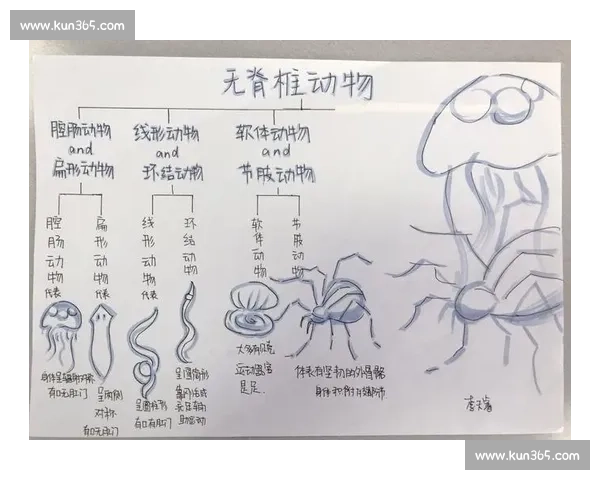 www.kun365.com
无脊椎动物
腔肠动物
and
扁形动物
线形动物
and
环结动物
软体动物
and
节肢动物
腔肠动物
代表
扁形动物
代表
线形动物
代表
环结动物
软体动物
节肢动物
身体呈辐射对称
有口无肛门
呈两侧
对称
有口无肛门
呈圆柱形
有口有肛门
呈圆筒形
靠刚毛或
疣足辅
助运动
大多有贝壳
运动器官
是足.
体表有坚韧的外骨骼
身体和附肢都分节
www.kun365.com